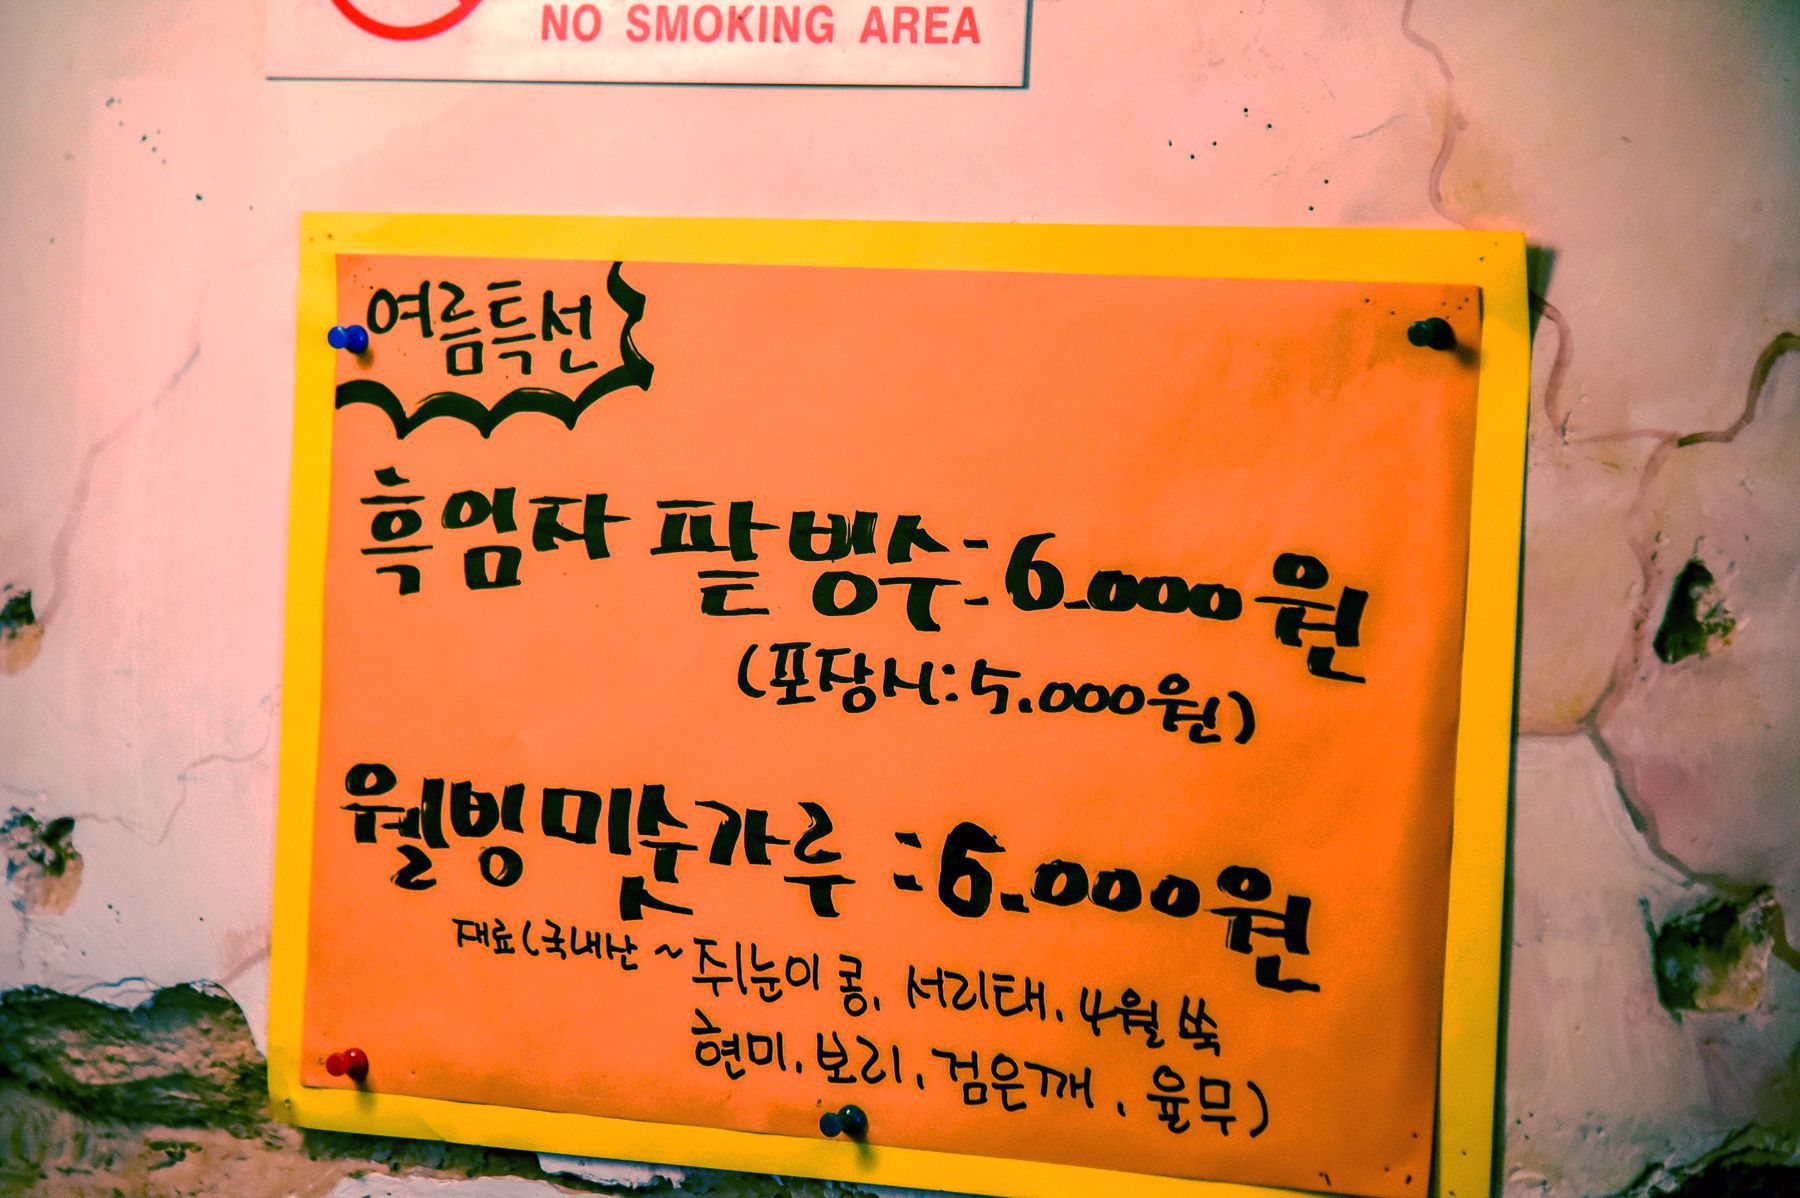 NO SMOKING AREA
여름특선
흑임자 팥빙수:6.000원
(포장시:5.000원)
웰빙미숫가루 :6.000원
재료(국내산~쥐눈이콩, 서리태, 4월쑥
현미, 보리, 검은깨, 율무)